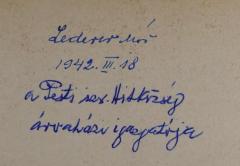 Lederer Mór
1942. III. 18
a Pesti izr. Hitközség
árvaházi igazgatója